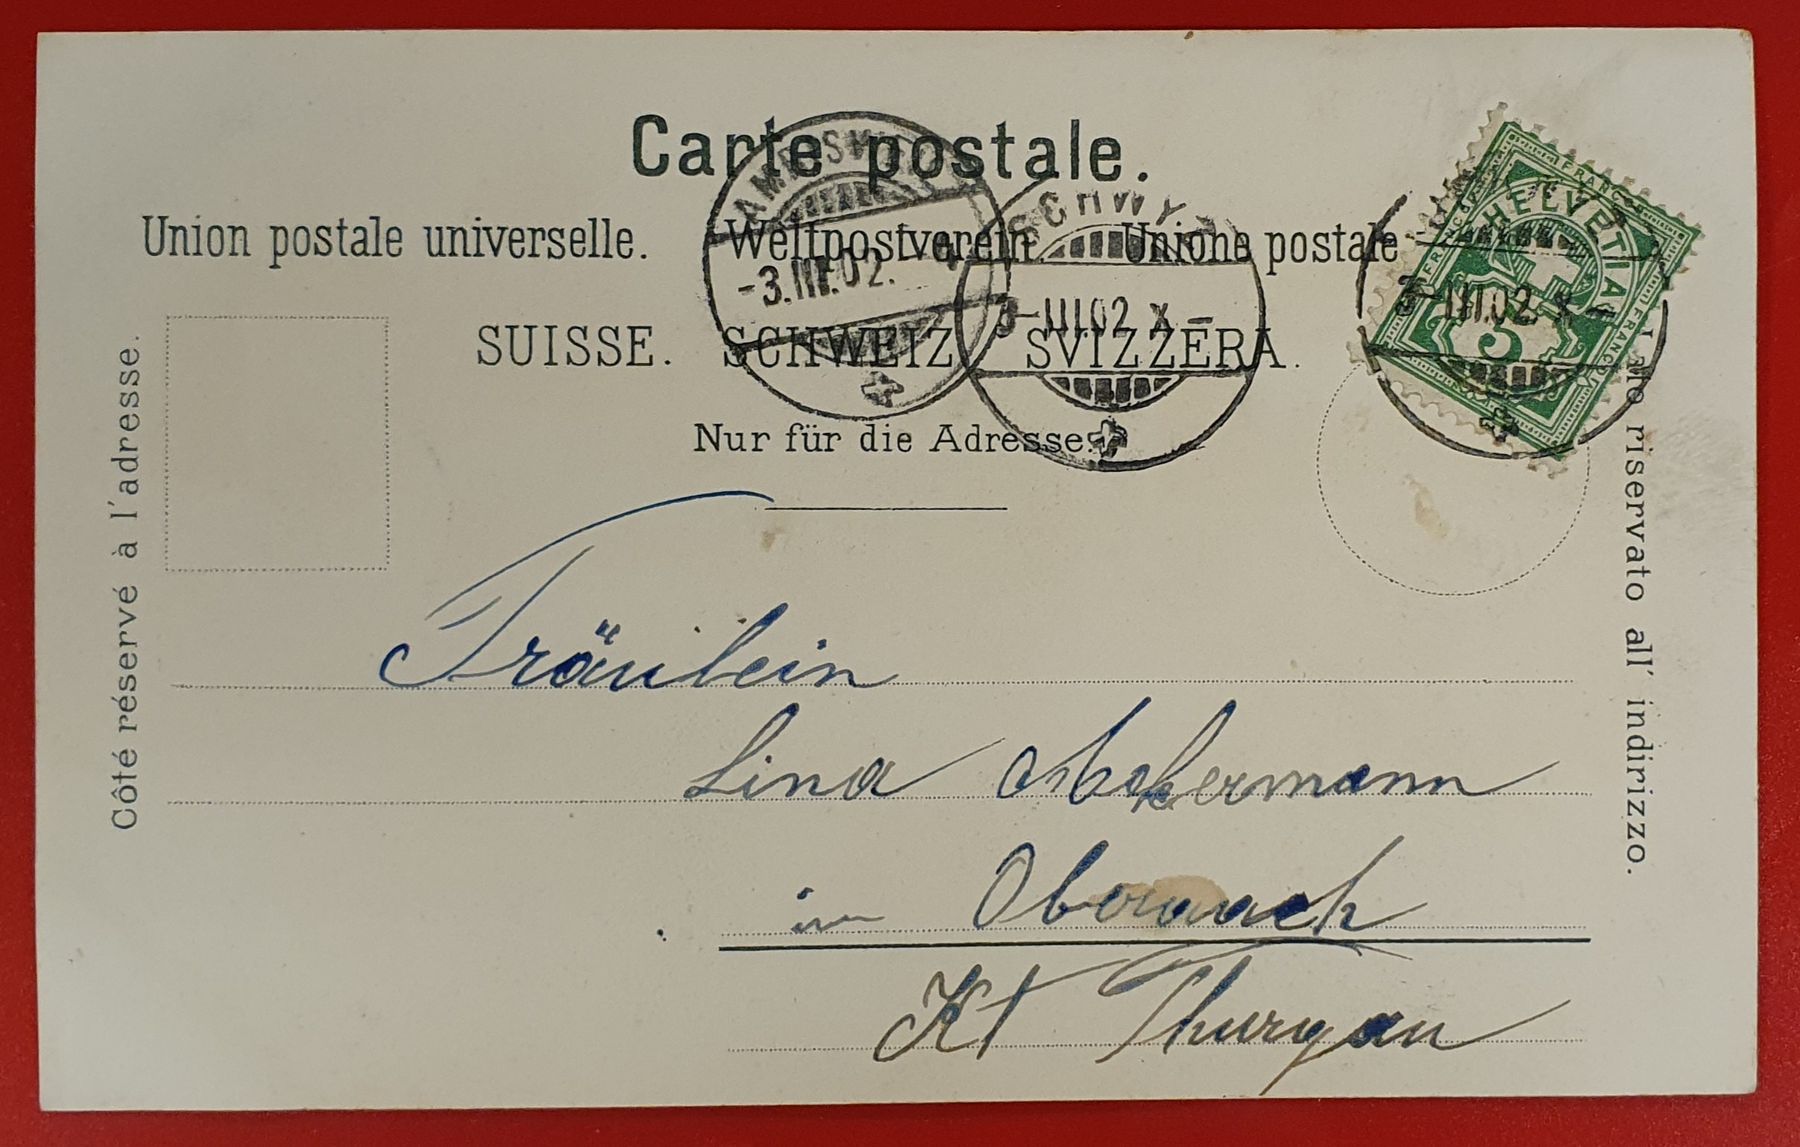 Carte postale.
Union postale universelle. Weltpostverein. Unione postale
SUISSE. SCHWEIZ SVIZZERA.
Nur für die Adresse.
Côté réservé à l'adresse.
Lato riservato all' indirizzo.
AMRISWIL
-3.III.02.
SCHWYZ
3-III.02 X-
3-III.02 X-
FRANCO
HELVETIA
FRANCO
FRANCO
5
Fräulein
Lina Ackermann
in Oberaach
Kt Thurgau